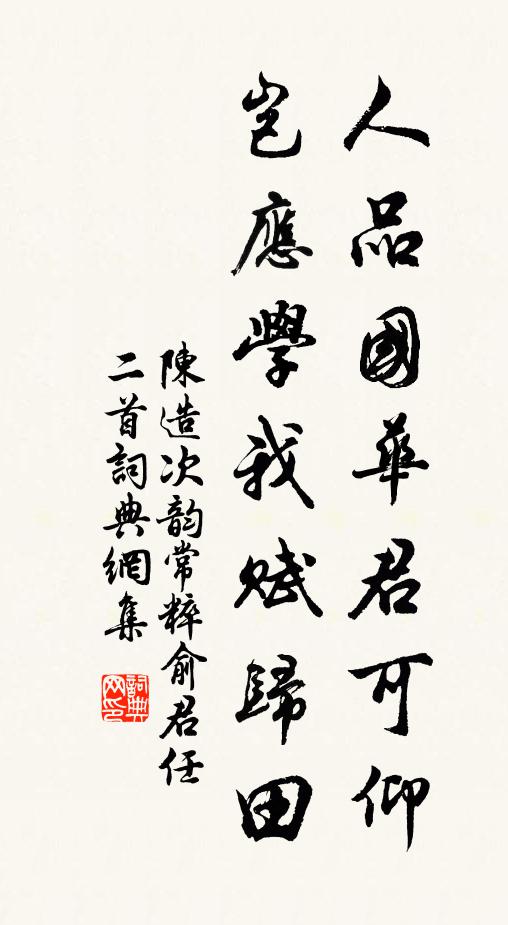 人品國華君可仰
豈應學我賦歸田
陳造次韵常粹俞君任
二首詞典網集
詞典
网印